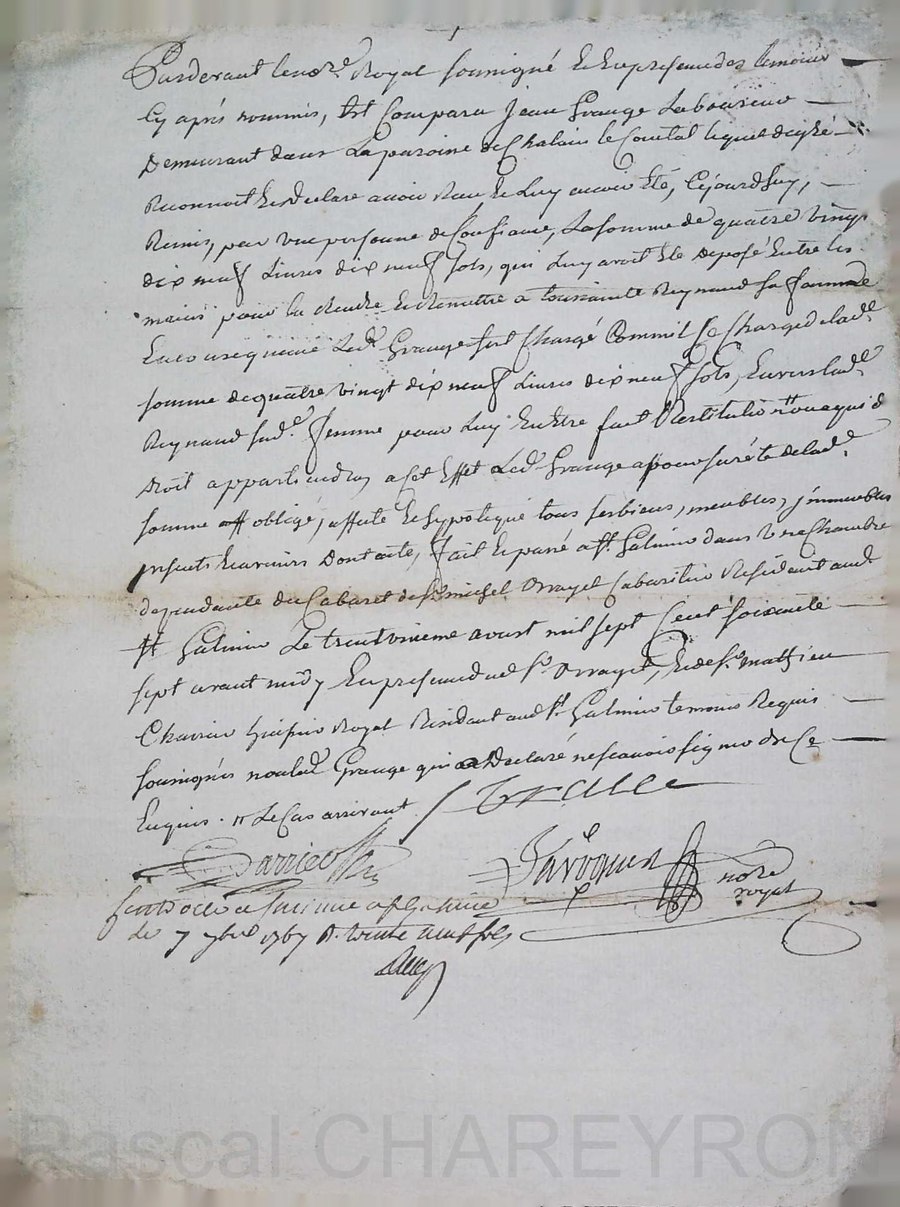 Pardevant le no.re Royal soussigné Et En presence des temoins
Cy aprés nommés, Est Comparu Jean Grange Laboureur
Demeurant dans La paroisse de Chalain le Comtal lequel de gré
Reconnoit Et declare avoir Recu, Et Luy avoir Eté, Cejourdhuy,
Remis, par une personne de Confiance, La somme de quatre vingt
dix neuf Livres dix neuf sols, qui Luy avoit Eté Deposé Entre les
mains pour la Rendre Et Remettre a toussainte Reynaud sa femme
En Consequence Led. Grange sest Chargé Comme il se Charge de lad.e
somme de quatre vingt dix neuf Livres dix neuf sols, Envers lad.e
Reynaud sad.e femme pour Luy En Etre fait Restitution ou a qui de
droit appartiendra, a Cet Effet Led. Grange a pour sureté de lad.e
somme obligé, affecté Et hypotequé tous ses biens, meubles, jmmeubles
presents Et avenirs Dont acte, fait Et passé a St. Galmier dans Une Chambre
dependante du Cabaret de Sr. michel Cabaretier Residant aud.
St Galmier Le trente unieme aoust mil sept Cent soixante
sept avant midy En presence dud. Sr. Et de Sr. Mathieu
huissier Royal Residant aud. St. Galmier temoins Requis
soussignés non led. Grange qui a Declaré ne scavoir signer de Ce
Enquis. n Le Cas arrivant
no.re
royal
a St Galmier
le 7 7bre 1767 R. treize neuf sols
Rascal CHAREYRON